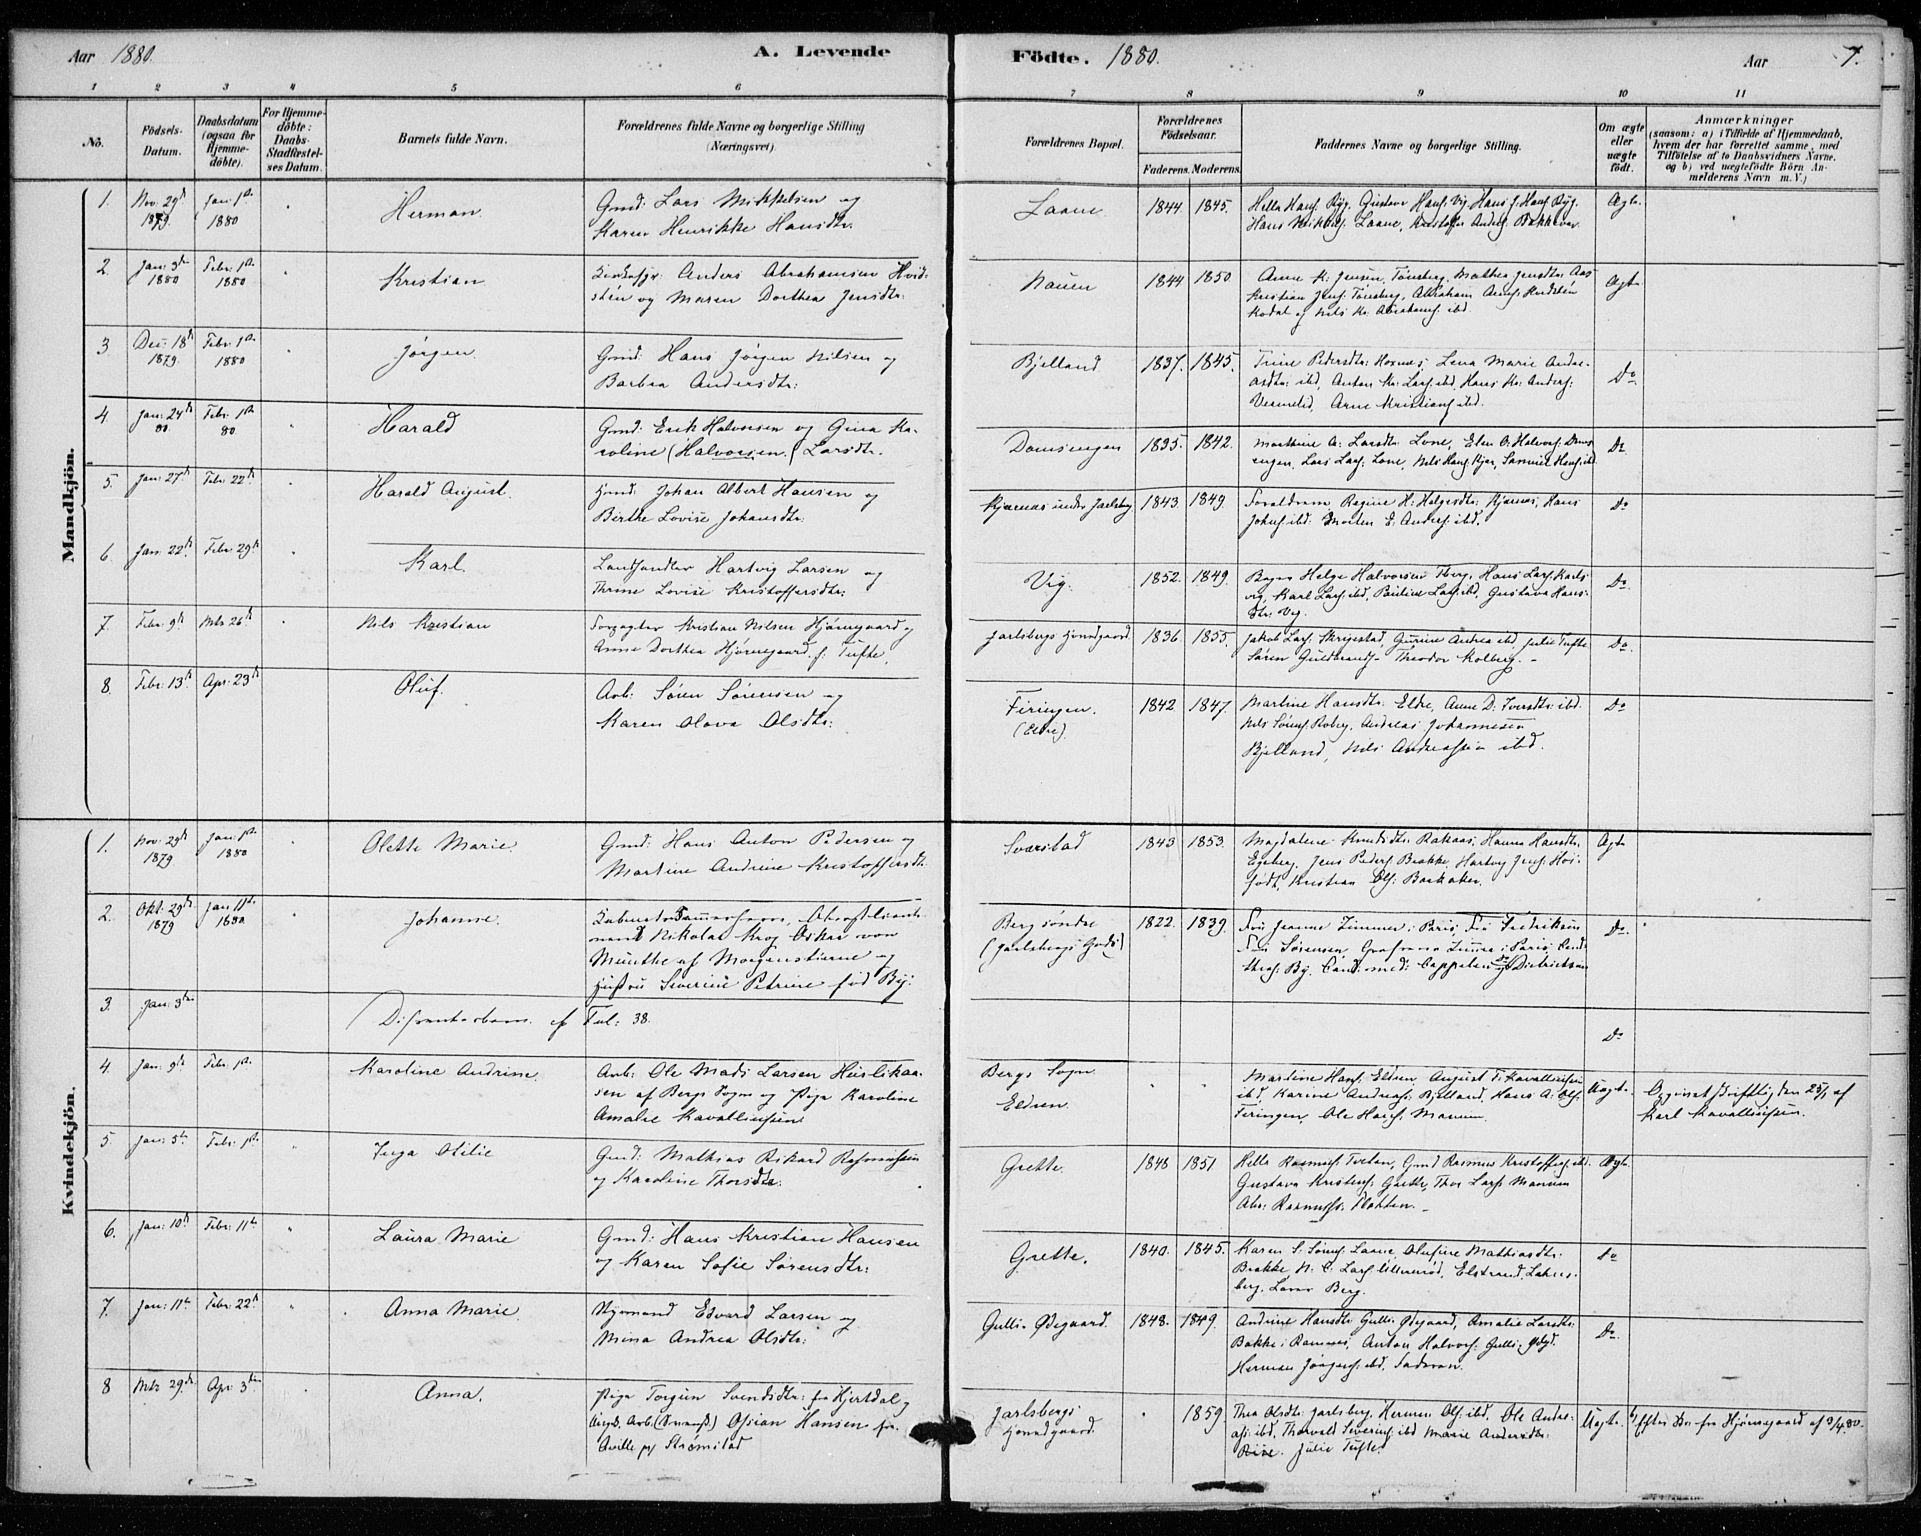 Aar 1880.
A. Levende
Födte. 1880.
Aar
7.
1 2 3 4 5 6
7 8 9 10 11
No.
Födsels-Datum.
Daabsdatum (ogsaa for Hjemme-döbte).
For Hjemme-döbte: Daabs-Stadfæstel-ses Datum.
Barnets fulde Navn.
Forældrenes fulde Navne og borgerlige Stilling (Næringsvei)
Forældrenes Bopæl.
Forældrenes Födselsaar.
Faderens. Moderens.
Faddernes Navne og borgerlige Stilling.
Om ægte eller uægte födt.
Anmærkninger (saasom: a) i Tilfælde af Hjemmedaab, hvem der har forrettet samme, med Tilföielse af to Daabsvidners Navne, og b) ved uægtefödte Börn An-melderens Navn m. V.)
Mandkjön.
1. Nov: 29d 1879. Jan: 1st 1880 Herman. Gmd: Lars Mikkelsen og
Karen Henrikke Hansdtr.
Laane. 1844. 1845. Helle Hansd. Gustava Hansd. Vig, Hans J. Hans.
Hans Mikkels. Laane, Kristoffer Anders. Bakkevar. Ægte.
2. Jan: 3d 1880 Febr. 1st 1880 Kristian Anders Abrahamsen Hvid-
stén og Maren Dorthea Jensdtr:
Nauen 1844 1850. Anne K. Jensen, Tönsberg, Mathea Jensdtr. Aas
Kristian Jens. Tönsberg, Abraham Anders. Hvidstén
Kodal og Nils Kr. Abrahams. ibd. Ægte
3. Dec: 18d 1879. Febr. 1st 1880 Jörgen. Gmd: Hans Jörgen Nilsen og
Barbra Andersdtr:
Bjelland 1837. 1845. Trine Pedersdtr: Lena Marie Andre-
asdtr: ibd, Anton Kr. Lars. ibd, Hans Kr: Anders:
Vermelid, Arne Kristians. ibd. Do
4. Jan: 24d 80. Febr: 1st 80. Harald Gmd: Erik Halvorsen og Gina Ka-
roline (Halvorsen.) Larsdtr.
Damsengen 1835. 1842. Marthine A: Larsdtr: Lone, Elen O: Halvors. Dams-
engen, Lars Lars. Lone, Nils Hans. Kjær, Samuel Hans. ibd Do
5. Jan: 27d Febr. 22d Harald August. Gmd: Johan Albert Hansen og
Birthe Lovise Johansdtr:
Kjærnæs under Jarlsberg 1843. 1849. Forældrene Regine H: Helgesdtr: Kjærnæs, Hans
Johs. ibd. Morten E. Anders. ibd. Do
6 Jan: 22d Febr: 29d Karl. Landhandler Hartvig Larsen og
Thrine Lovise Kristoffersdtr:
Vig. 1852. 1849. Helge Halvorsen Tberg, Hans Lars. Karls
vig, Karl Lars. ibd, Pauline Lars. ibd, Gustava Hans-
dtr: Vig. Do
7. Febr. 9d Mts 26d Nils Kristian Forpagter Kristian Nilsen Hjörnegaard og
Anne Dorthea Hjörnegaard f. Tufte.
Jarlsbergs Hovedgaard. 1836 1855. Jakob Lars. Skrigestad, Gurine Andrea ibd, Julie Tufte
Sören Guldbrands. Theodor Kolberg. Do
8. Febr: 13d Apr: 23d Oluf. Arb: Sören Sörensen og
Karen Olava Olsdtr:
Firingen. (Eldre). 1842 1847. Martine Hansdtr: Eldre, Anne D. Iversdtr: ibd.
Nils Sörens. Roberg, Andreas Johannesen
Bjelland, Nils Andreassen ibd. Do
Kvindekjön.
1. Nov: 29d 1879 Jan: 1st 1880 Olette Marie. Gmd: Hans Anton Pedersen og
Martine Andrine Kristoffersdtr.
Sværstad 1843 1853. Magdalene Knudsdtr. Rakaas, Hanna Hansdtr:
Egeberg, Jens Peders. Brække, Hartvig Jens. Hös-
födt, Kristian Ols. Barkaker. Ægte
2. Okt: 29d 1879 Jan 11te 1880 Johanne. Oberstlieut-
nant Nikolai Krog Oskar von
Munthe af Morgenstierne og
Hustru Severine Petrine föd By:
Berg söndre (Jarlsbergs Gods) 1822. 1839. Frk Jeanne Zimmer i Paris, Frk Fredriksen
Sörensen, i Paris, Cand:
theol: By. Cand: med: Cappelen og Dietrichson Do
3. Jan: 3die Dissenterbarn cf Fol: 38. Do
4. Jan: 9de Febr. 1st. Karoline Andrine. Arb: Ole Mads Larsen Husliaa-
sen af Bergs Sogn og Pige Karoline
Amalie Kavallinsen:
Bergs Sogn Eldren. Martine Hans. Eldren, August F. Kavallinsen
ibd. Karine Andreas. Bjelland, Hans A: Ols.
Firingen, Ole Hans. Manum Uægte. Opgivet skriftlig den 25/1 af
Karl Kavallinsen.
5. Jan: 5te Febr. 1st. Inga Otilie Gmd: Mathias Rikard Rasmussen
og Karoline Thorsdtr:
Grette. 1848 1851 Helle Rasmus. Tveten, Gmd Rasmus Kristoffers. ibd.
Gustava Kristens. Grette, Thor Lars. Manum
Abr: Rasmuss. Ægte.
6. Jan: 10d Febr: 11te Laura Marie Gmd: Hans Kristian Hansen
og Karen Sofie Sörensdtr:
Grette. 1840. 1845. Karen S. Sörens. Laane, Olufine Mathiasdtr:
Brække N. C. Lars Lillerud, Elstrand,
berg, Berg. Do
7. Jan: 11te Febr: 22d Anna Marie. Edvard Larsen og
Mina Andrea Olsdtr:
Gulli Ödegaard. 1848. 1849. Andrine Hansdtr. Gulli Ödegaard, Amalie Larsdtr:
Bakke i Ramnes, Anton Halvors. Gulli Ödgd.
Herman Jörgens. ibd. Faderen. Do
8 Mts 29de Apr: 3die Anna. Pige Torgun Svendsdtr: fra Hjertdal og
Arb. Ossian Hansen fra
Aville pr Strömstad
Jarlsbergs Hovedgaard. 1859. Thea Olsdtr: Jarlsberg, Herman Ols. ibd. Ole Andre-
as. ibd. Thorvald Severins. ibd Marie Andersdtr:
Julie Tufte. Uægte. Efter Br: fra Hjörnegaard af 3/4.80.